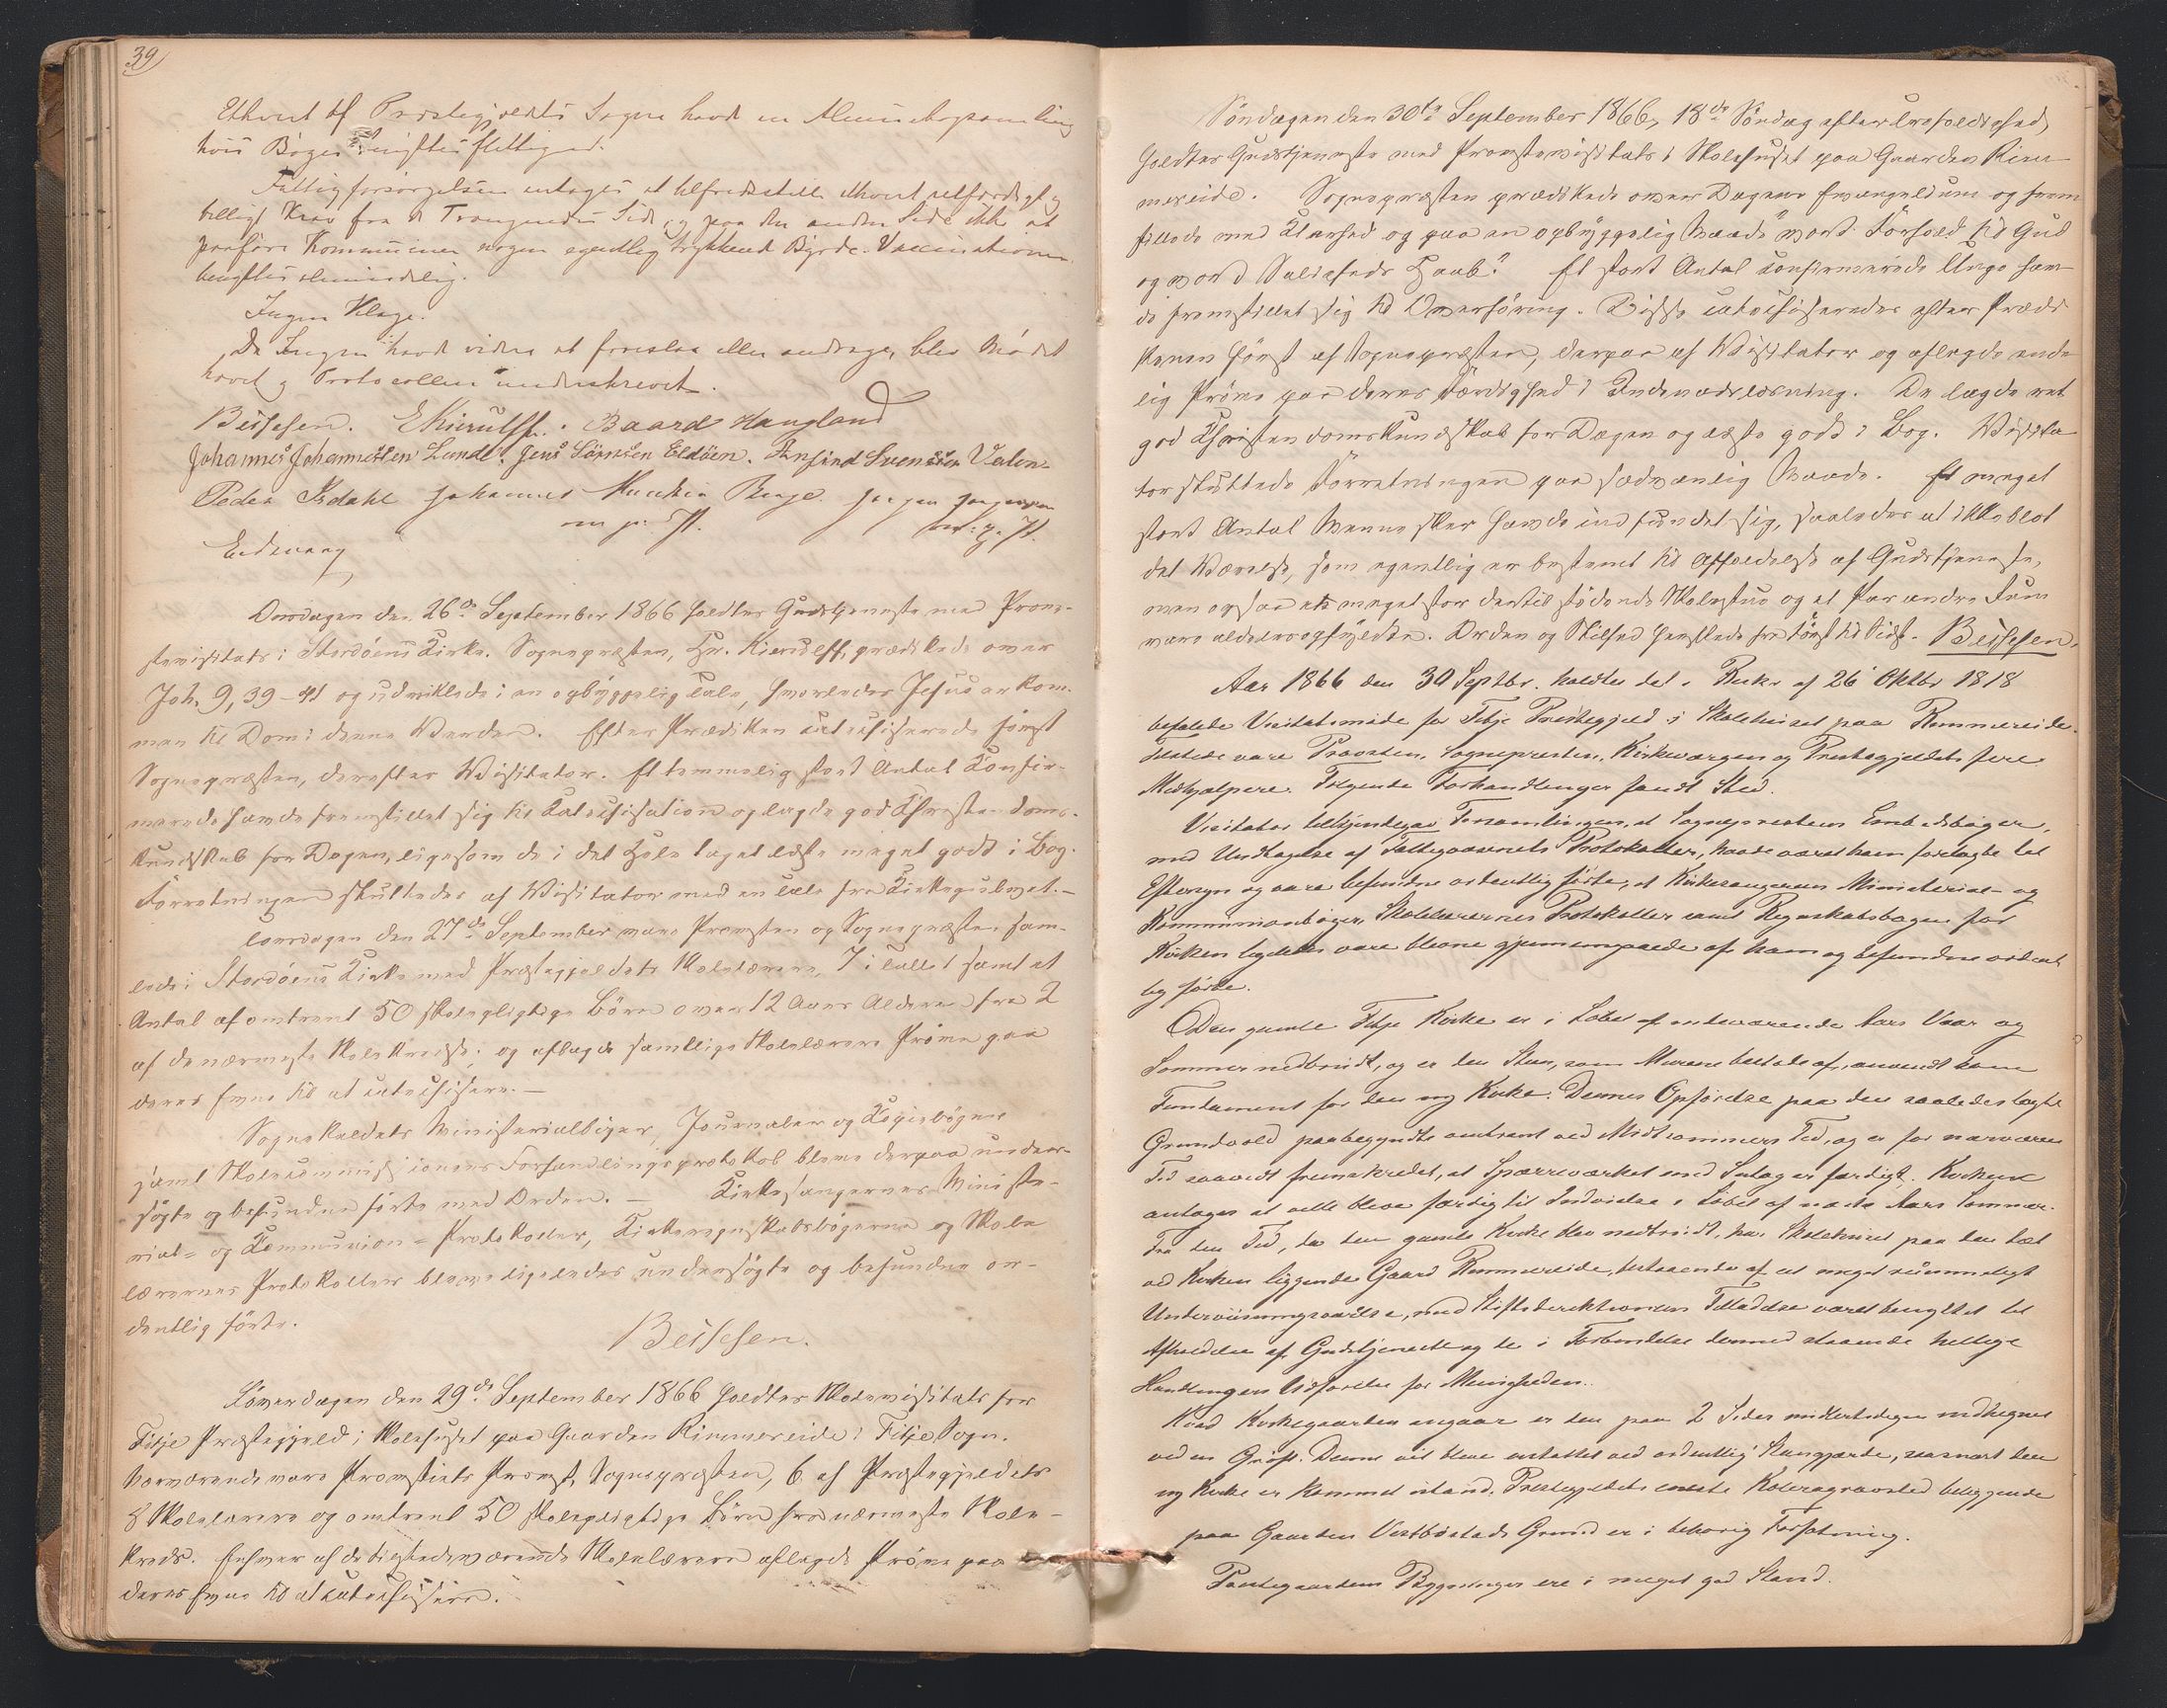 39
Ethvert af Præstegjeldets Sogne havde en Almuebogsamling
hvis Bøger benyttes flittigen.
Fattigforsørgelsen antages at tilfredsstille ethvert retfærdigt og
billigt Krav fra de Trængendes Side og paa den anden Side ikke at
paaføre Kommunen nogen egentlig trykkende Byrde. Vaccinationen
benyttes almindelig.
Ingen Klage.
Da Ingen havde videre at foreslaa eller andrage, blev Mødet
hævet og Protocollen underskrevet.
Beissen. E Kierulff. Baard Haugland
Johannes Johannessen Lunde. Jens Sörensen Eldöen. Svensen
Peder Isdahl Johannes Berge.
m. p. P. m. p. P.
Onsdagen den 26de September 1866 holdtes Gudstjeneste med Prov-
stevisitats i Stordöens Kirke. Sognepræsten, Hr. Kierulff, prædikede over
Joh. 9, 39-41 og udviklede i en opbyggelig Tale, hvorledes Jesus er kom-
men til Dom i denne Verden. Efter Prædiken catechiserede först
Sognepræsten, derefter Visitator. Et temmelig stort Antal Confir-
merede havde fremstillet sig til Catechisation og lagde god Christendoms-
kundskab for Dagen, ligesom de i det Hele taget læste meget godt i Bog.
Forretningen sluttedes af Visitator med en Tale fra Kirkegulvet.-
Torsdagen den 27de September vare Provsten og Sognepræsten sam-
lede i Stordöens Kirke med Præstegjeldets Skolelærere, 7 i Tallet samt et
Antal af omtrent 50 skolepligtige Börn over 12 Aars Alderen fra 2
af de nærmeste Skolekredse; og aflagde samtlige Skolelærere Pröve paa
deres Evne til at catechisere.-
Sognekaldets Ministerialböger, Journaler og Kopiböger
samt Skolecommissionens Forhandlingsprotokol bleve derpaa under-
sögte og befundne förte med Orden. - Kirkesangernes Ministe-
rial- og Kommunion-Protokoller, Kirkeregnskabsbögerne og Skole
lærernes Protokoller bleve ligeledes undersögte og befundne or-
dentlig förte.
Beissen.
Löverdagen den 29de September 1866 holdtes Skolevisitats for
Fitje Præstegjeld i Skolehuset paa Gaarden Rimmereide i Fitje Sogn.
Nærværende vare Provstiets Provst, Sognepræsten, 6 af Præstegjeldets
8 Skolelærere og omtrent 50 skolepligtige Börn fra nærmeste Skole-
kreds. Enhver af de tilstedeværende Skolelærere aflagde Pröve paa
deres Evne til at catechisere.
Söndagen den 30te September 1866, 18de Söndag efter Trefoldighed,
holdtes Gudstjeneste med Provstevisitats i Skolehuset paa Gaarden Rim-
mereide. Sognepræsten prædikede over Dagens Evangelium og frem
stillede med Klarhed og paa en opbyggelig Maade "vort Forhold til Gud
og vort Saligheds Haab". Et stort Antal confirmerede Unge hav-
de fremstillet sig til Overhöring. Disse catechiseredes efter Prædi-
kenen först af Sognepræsten, derpaa af Visitator og aflagde ende
lig Pröve paa deres Færdighed i Indenadslæsning. De lagde ret
god Christendomskundskab for Dagen og læste godt i Bog. Visita
tor sluttede Forretningen paa sædvanlig Maade. Et meget
stort Antal Mennesker havde indfundet sig, saaledes at ikke blot
det Værelse, som egentlig er bestemt til Afholdelse af Gudstjeneste,
men ogsaa en meget stor dertil stödende Skolestue og et Par andre Rum
vare aldeles opfyldte. Orden og Stilhed herskede fra Först til Sidst. Beissen.
Aar 1866 den 30 Septbr. holdtes det i Reskr. af 26 Oktbr 1818
befalede Visitatsmøde for Fitje Præstegjeld i Skolehuset paa Rimmereide.
Tilstede vare Provsten, Sognepresten, Kirkeværgen og Prestegjeldets fire
Medhjælpere. Følgende Forhandlinger fandt Sted.
Visitator tilkjendegav Forsamlingen, at Sogneprestens Embedsbøger,
med Undtagelse af Fattigvæsenets Protokoller, havde været ham forelagte til
Eftersyn og vare befundne ordentlig førte, at Kirkesangerens Ministerial- og
Kommunionbøger, Skolelærernes Protokoller samt Regnskabsbogen for
Kirken ligeledes vare blevne gjennemgaaede af ham og befundne ordent
lig førte.
Den gamle Fitje Kirke er i Løbet af indeværende Aars Vaar og
Sommer nedbrudt, og er den Sten, som Murene bestode af, anvendt som
Fundament for den ny Kirke. Dennes Opførelse paa den saaledes lagte
Grundvold paabegyndtes omtrent ved Midtsommers Tid, og er for nærværende
Tid saavidt fremskredet, at Spærreværket med Sutag er færdigt. Kirken
antages at ville blive færdig til Indvielse i Løbet af næste Aars Sommer.
Fra den Tid, da den gamle Kirke blev nedbrudt, har Skolehuset paa den tæt
ved Kirken liggende Gaard Rimmereide, bestaaende af et meget rummeligt
Undervisningsværelse, med Stiftsdirektionens Tilladelse været benyttet til
Afholdelse af Gudstjeneste og de i Forbindelse dermed staaende hellige
Handlingers Udførelse for Menigheden.
Hvad Kirkegaarden angaar er den paa 2 Sider midlertidigen indhegnet
ved en Grøft. Denne vil blive erstattet ved ordentligt Stengjærde, saasnart den
ny Kirke er kommet istand. Prestegjeldets eneste Koleragravsted beliggende
paa Gaarden Vestbøstads Grund er i tilbørlig Forfatning.
Prestegaardens Bygninger ere i meget god Stand.